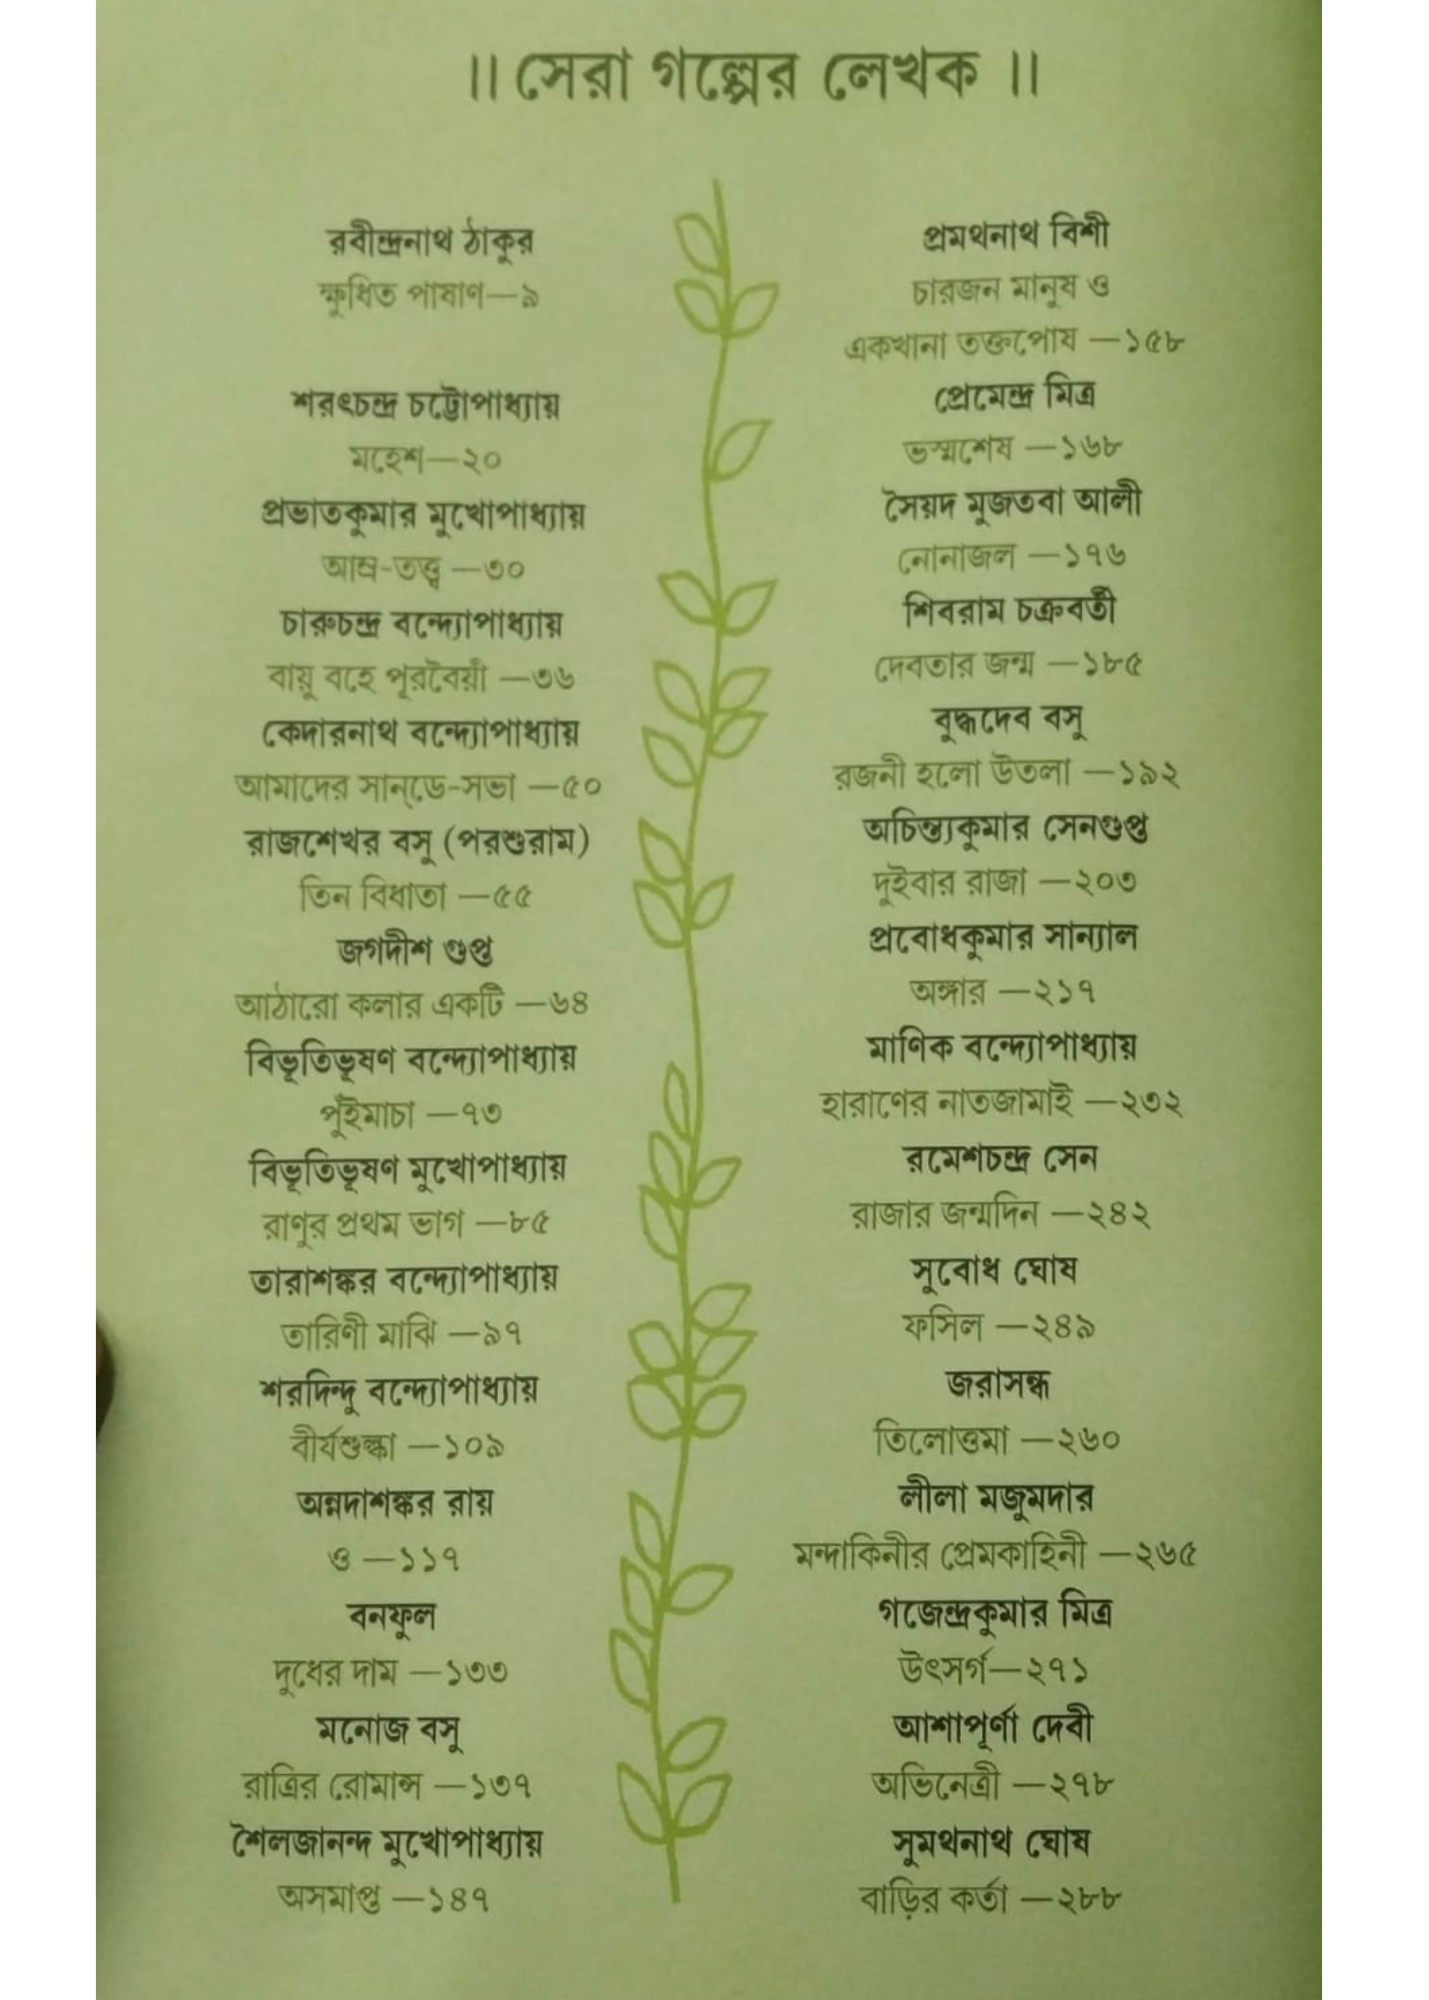 ॥ সেরা গল্পের লেখক ॥
রবীন্দ্রনাথ ঠাকুর
ক্ষুধিত পাষাণ—৯
শরৎচন্দ্র চট্টোপাধ্যায়
মহেশ—২০
প্রভাতকুমার মুখোপাধ্যায়
আম্র-তত্ত্ব —৩০
চারুচন্দ্র বন্দ্যোপাধ্যায়
বায়ু বহে পূরবৈয়াঁ —৩৬
কেদারনাথ বন্দ্যোপাধ্যায়
আমাদের সান্‌ডে-সভা —৫০
রাজশেখর বসু (পরশুরাম)
তিন বিধাতা —৫৫
জগদীশ গুপ্ত
আঠারো কলার একটি —৬৪
বিভূতিভূষণ বন্দ্যোপাধ্যায়
পুঁইমাচা —৭৩
বিভূতিভূষণ মুখোপাধ্যায়
রাণুর প্রথম ভাগ —৮৫
তারাশঙ্কর বন্দ্যোপাধ্যায়
তারিণী মাঝি —৯৭
শরদিন্দু বন্দ্যোপাধ্যায়
বীর্যশুল্কা —১০৯
অন্নদাশঙ্কর রায়
ও —১১৭
বনফুল
দুধের দাম —১৩৩
মনোজ বসু
রাত্রির রোমান্স —১৩৭
শৈলজানন্দ মুখোপাধ্যায়
অসমাপ্ত —১৪৭
প্রমথনাথ বিশী
চারজন মানুষ ও
একখানা তক্তপোষ —১৫৮
প্রেমেন্দ্র মিত্র
ভস্মশেষ —১৬৮
সৈয়দ মুজতবা আলী
নোনাজল —১৭৬
শিবরাম চক্রবর্তী
দেবতার জন্ম —১৮৫
বুদ্ধদেব বসু
রজনী হলো উতলা —১৯২
অচিন্ত্যকুমার সেনগুপ্ত
দুইবার রাজা —২০৩
প্রবোধকুমার সান্যাল
অঙ্গার —২১৭
মাণিক বন্দ্যোপাধ্যায়
হারাণের নাতজামাই —২৩২
রমেশচন্দ্র সেন
রাজার জন্মদিন —২৪২
সুবোধ ঘোষ
ফসিল —২৪৯
জরাসন্ধ
তিলোত্তমা —২৬০
লীলা মজুমদার
মন্দাকিনীর প্রেমকাহিনী —২৬৫
গজেন্দ্রকুমার মিত্র
উৎসর্গ—২৭১
আশাপূর্ণা দেবী
অভিনেত্রী —২৭৮
সুমথনাথ ঘোষ
বাড়ির কর্তা —২৮৮